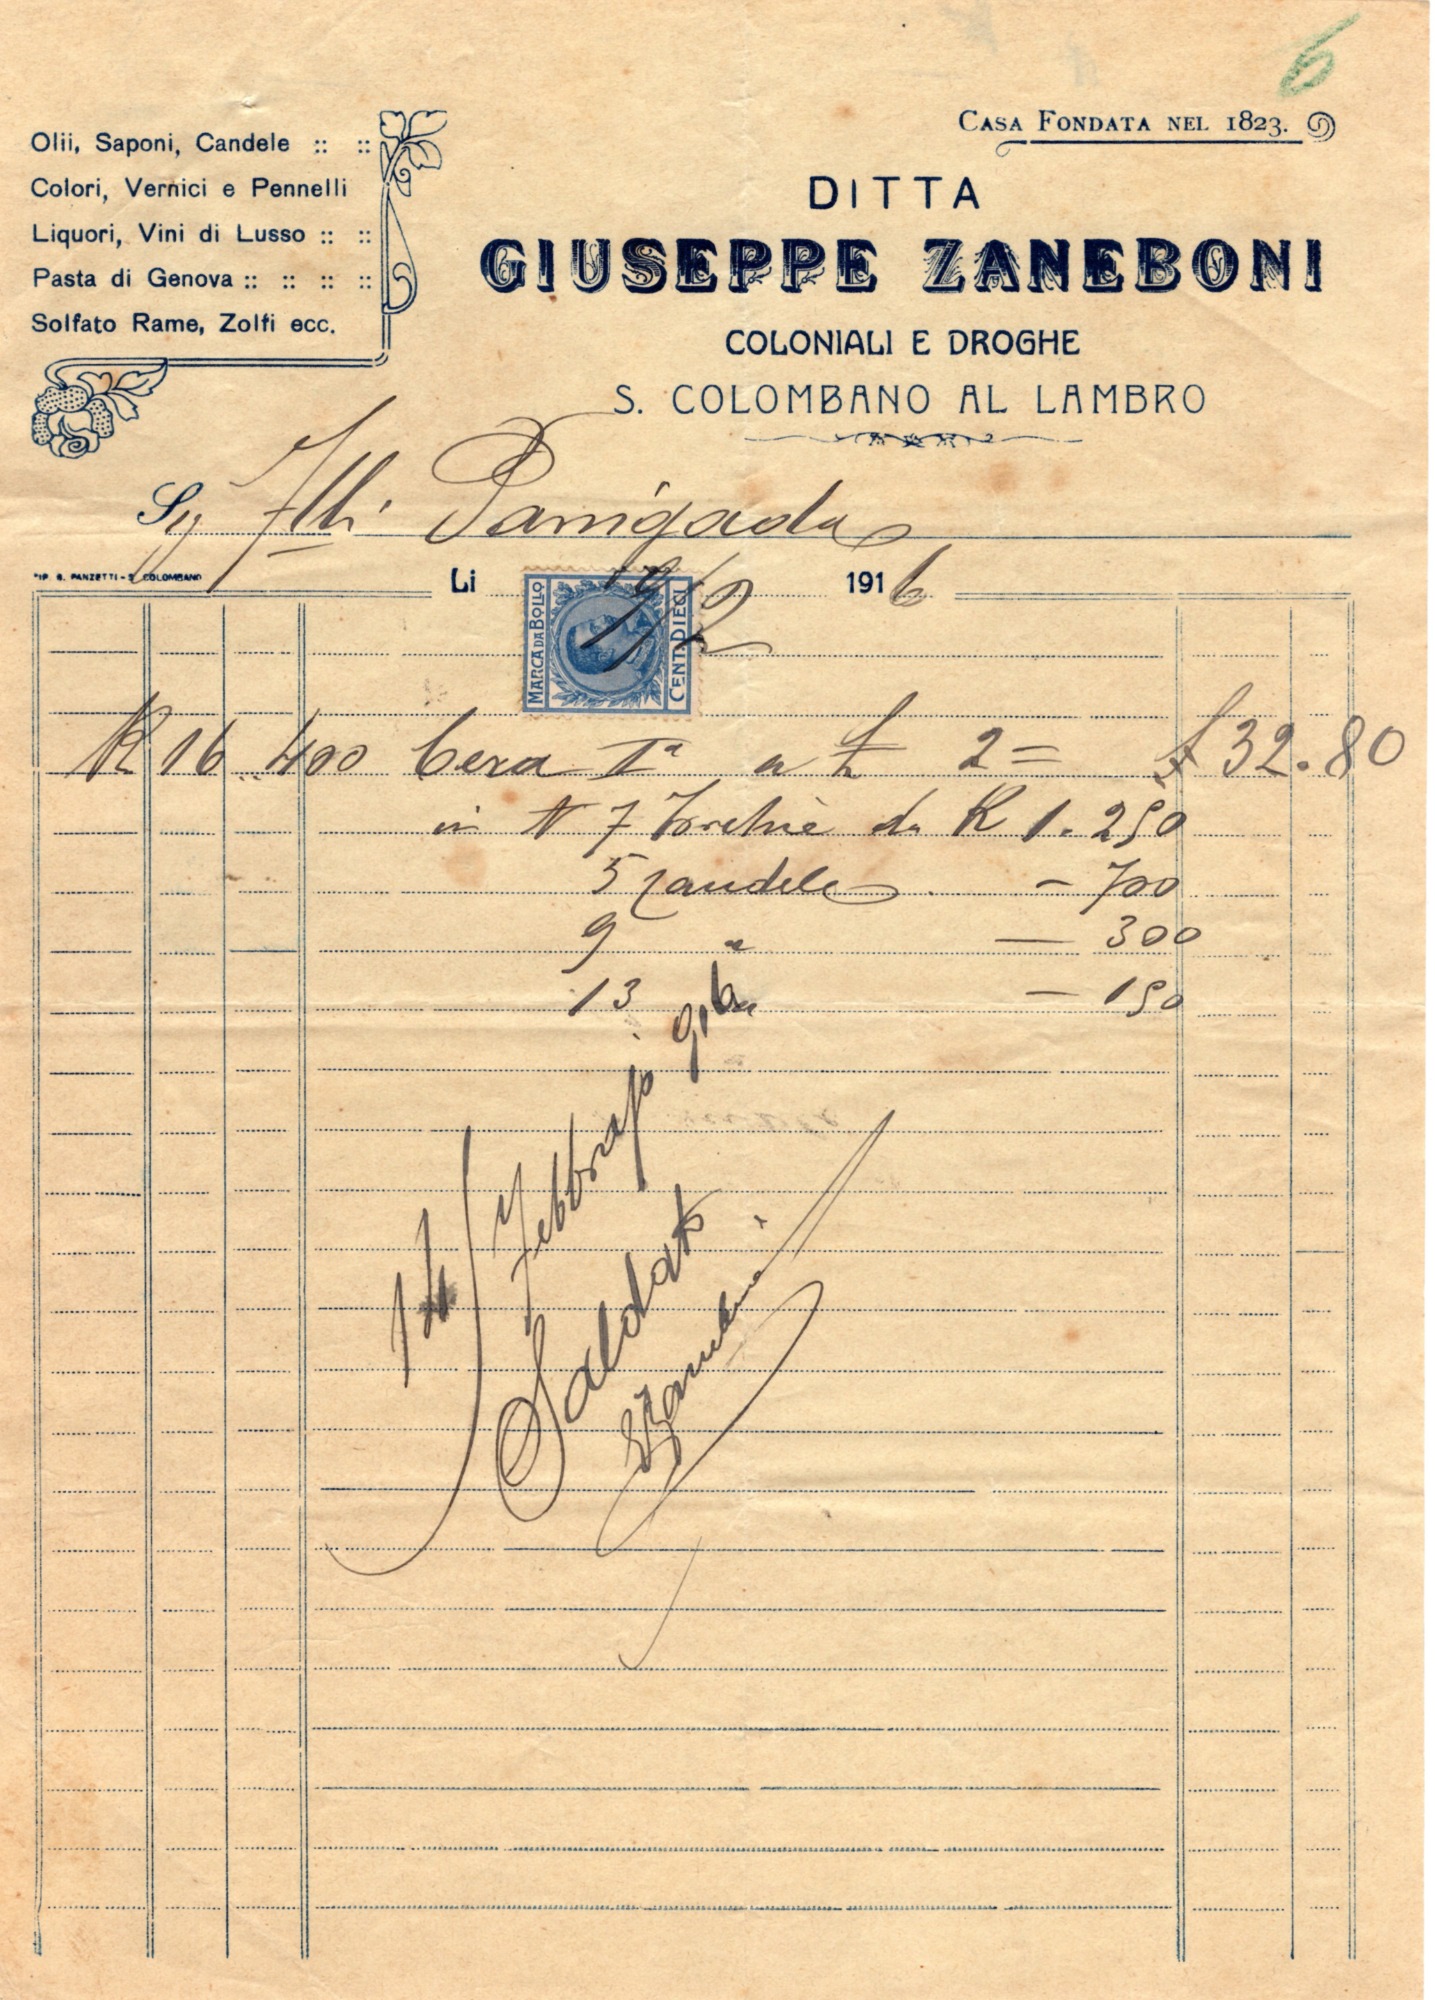 6
Casa Fondata nel 1823.
Olii, Saponi, Candele :: ::
Colori, Vernici e Pennelli
Liquori, Vini di Lusso :: ::
Pasta di Genova :: :: :: ::
Solfato Rame, Zolfi ecc.
DITTA
GIUSEPPE ZANEBONI
COLONIALI E DROGHE
S. COLOMBANO AL LAMBRO
Sig Flli Panigada
TIP. G. PANZETTI - S. COLOMBANO
Li 9/2 1916
MARCA DA BOLLO
CENT. DIECI
K 16 .. 400 Cera Iª a £ 2 = £ 32.80
in N 7 Torchie da K 1. 250
5 Candele . — 700
9 " — 300
13 " — 150
14/ Febbrajo 916
Saldato